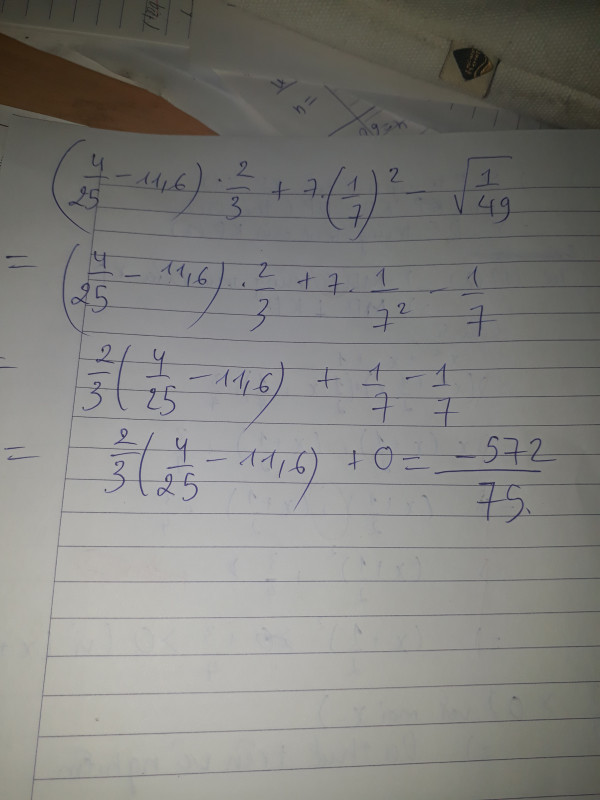 n =
(4/25 − 11,6) · 2/3 + 7·(1/7)² − √(1/49)
= (4/25 − 11,6) · 2/3 + 7 · 1/7² − 1/7
= 2/3 (4/25 − 11,6) + 1/7 − 1/7
= 2/3 (4/25 − 11,6) + 0 = −572/75.